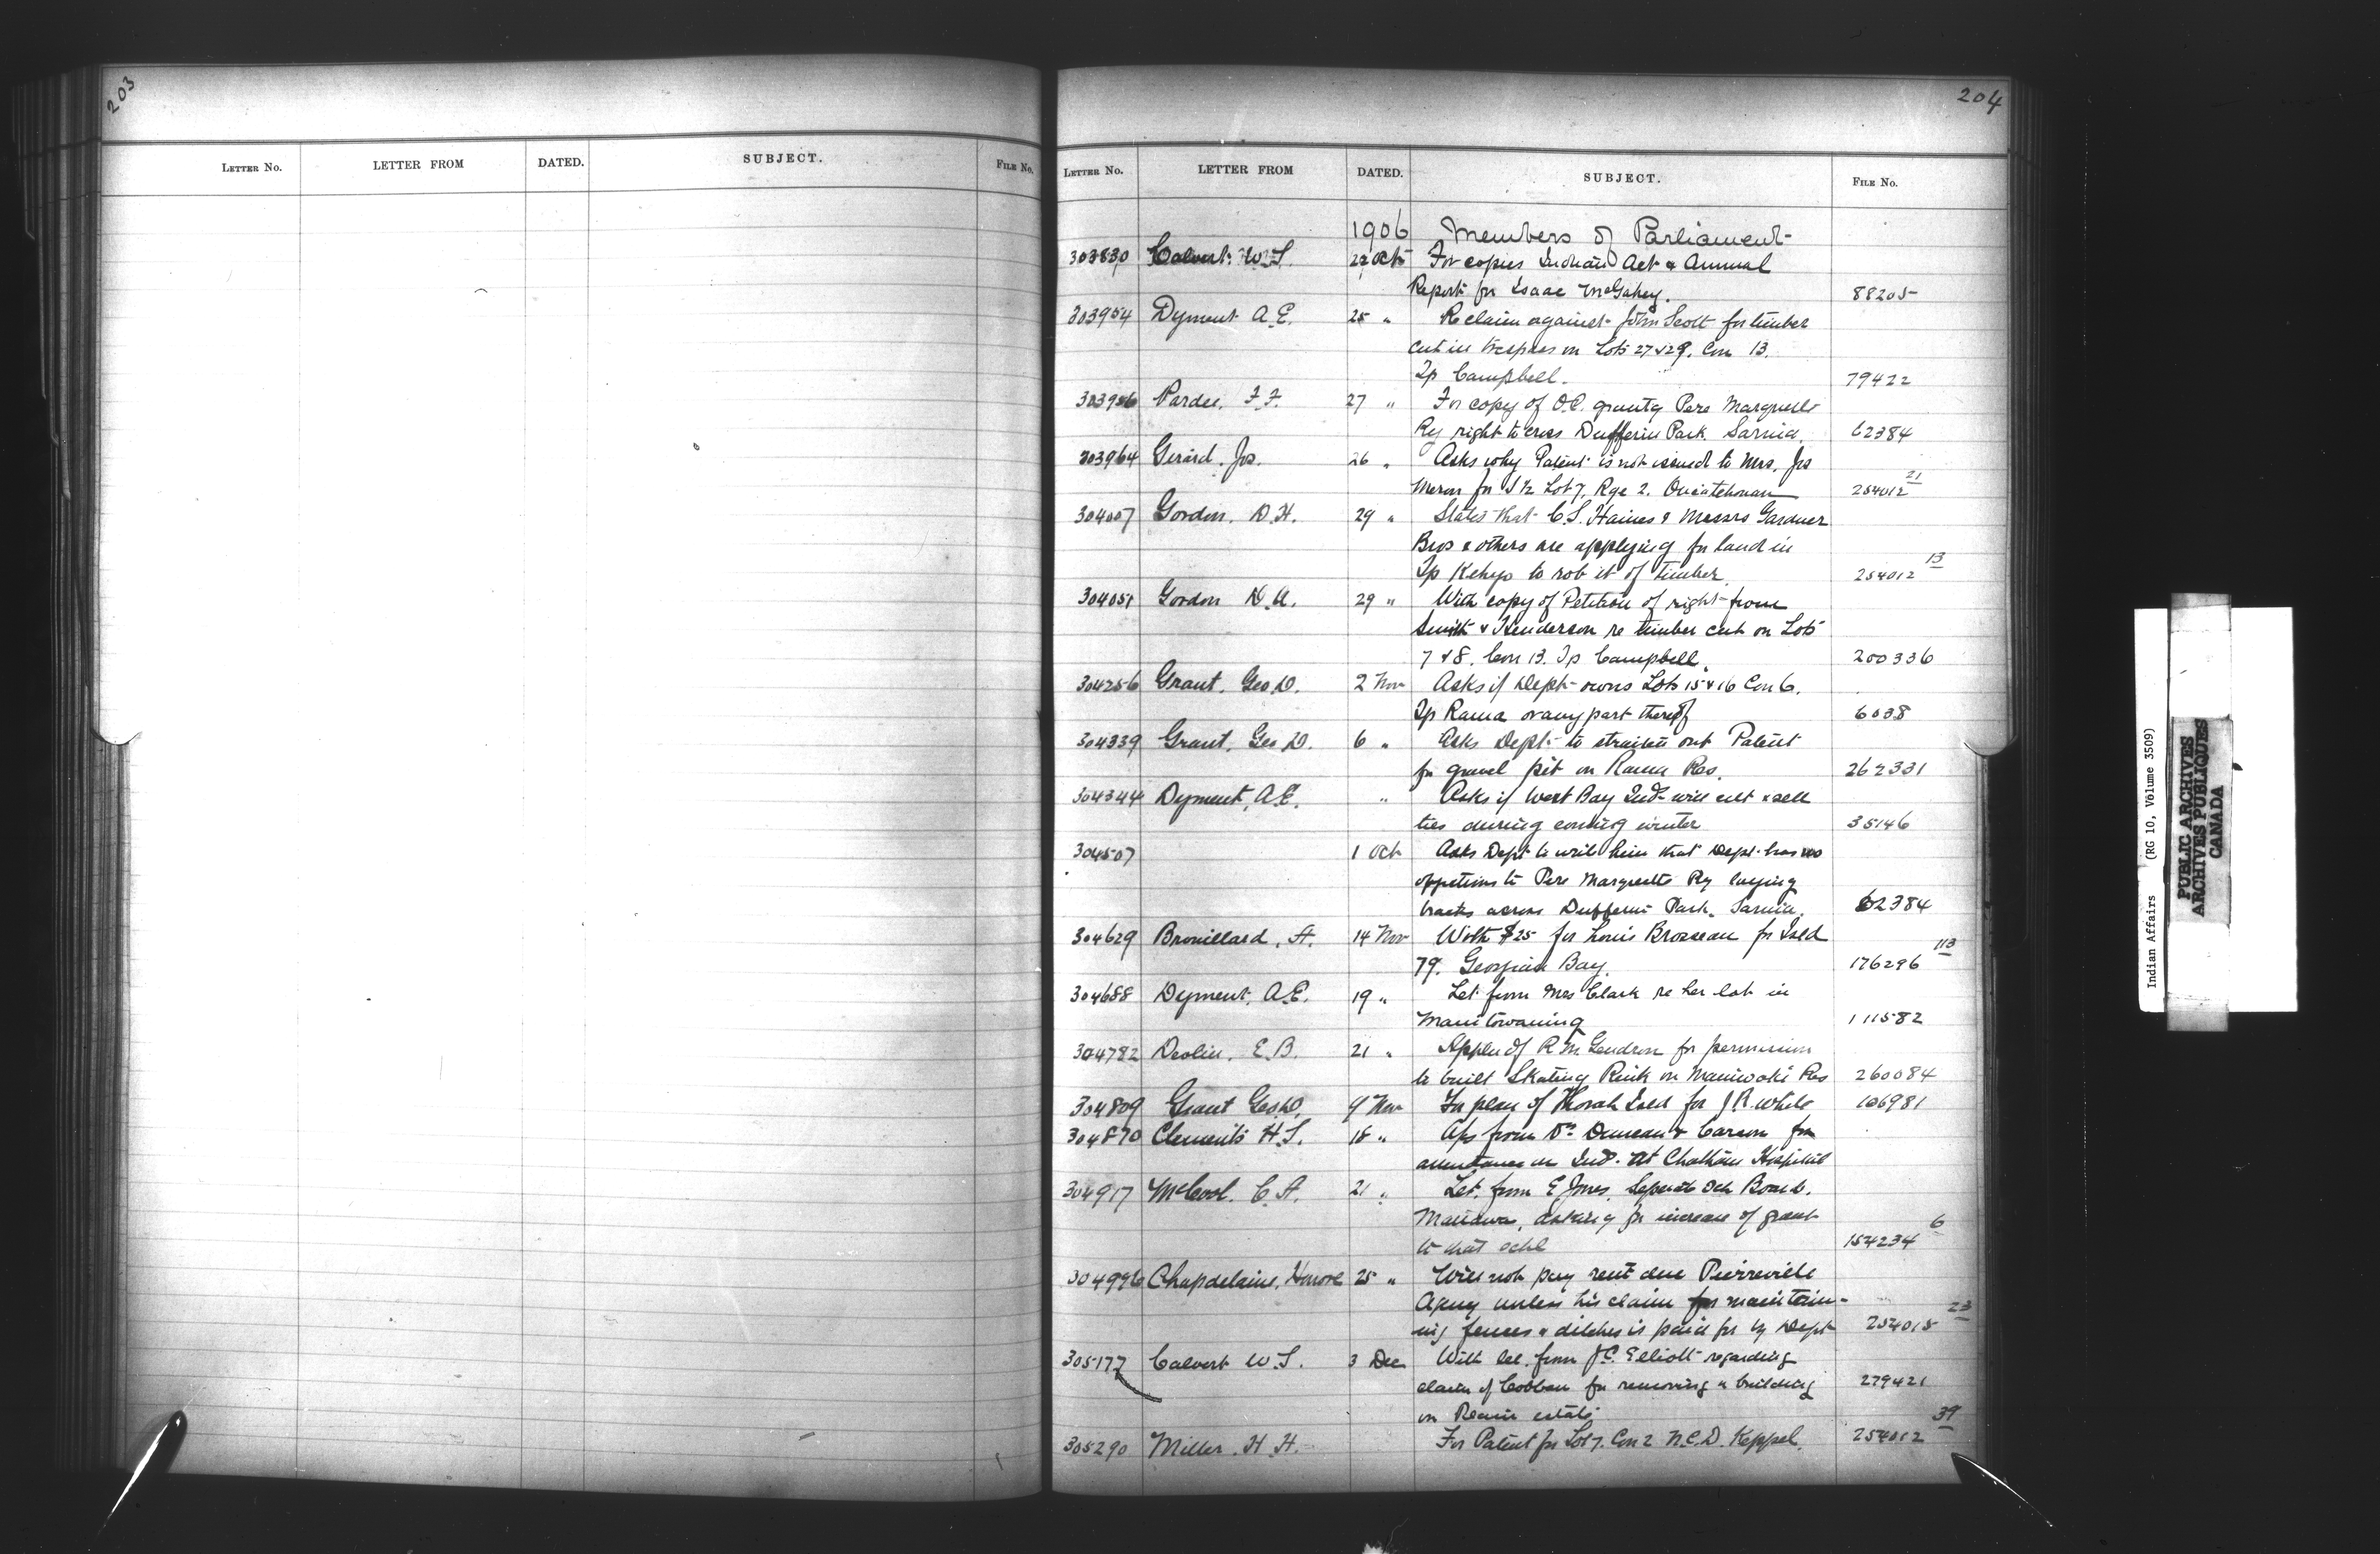 203
LETTER NO. LETTER FROM DATED. SUBJECT. FILE NO.
204
LETTER NO. LETTER FROM DATED. SUBJECT. FILE NO.
1906 Members of Parliament
303830 Calvert W. S. 22 Oct For copies Indian Act & Annual
Report for Isaac McGahey. 88205
303954 Dyment A. E. 25 " Re claim against John Scott for timber
cut in trespass on Lots 27 & 29. Con 13.
Tp Campbell. 79422
303956 Pardee, F. F. 27 " For copy of O.C. grantg Pere Marquette
Ry right to cross Dufferin Park. Sarnia. 62384
303964 Girard. Jos. 26 " Asks why Patent is not issued to Mrs. Jos
for S ½ Lot 7, Rge 2. Ouiatchouan 254012 21
304007 Gordon. D. H. 29 " States that C. S. Haines & Messrs Gardner
Bros & others are applying for land in
Tp Kehyo to rob it of timber. 254012 13
304051 Gordon D. A. 29 " With copy of Petition of right from
Smith & Henderson re timber cut on Lots
7 & 8. Con 13. Tp Campbell. 200336
304256 Grant, Geo. D. 2 Nov Asks if Dept owns Lots 15 & 16 Con 6.
Tp Rama or any part thereof 6038
304339 Grant, Geo D. 6 " Asks Dept to straiten out Patent
for gravel pit on Rama Res. 262331
304344 Dyment, A. E. " Asks if West Bay Inds will cut & sell
ties during coming winter 35146
304507 1 Oct Asks Dept to write him that Dept has no
oppetions to Pere Marquette Ry laying
tracks across Dufferin Park. Sarnia. 62384
304629 Brouillard, A. 14 Nov With $25 for Louis Brosseau for Isld
79. Georgian Bay. 176296 113
304688 Dyment, A. E. 19 " Let from Mrs Clark re her lot in
Manitowaning 111582
304782 Devlin, E. B. 21 " Appln of R. M. Gendron for permission
to built Skating Rink on Maniwaki Res 260084
304809 Grant Geo D. 9 Nov For plan of Thorah Isld for J. R. White 106981
304870 Clements H. S. 18 " A/cs from Drs Duncan & Carson for
attendance on Inds. at Chatham Hospital
304917 McCool. C. A. 21 " Let. from E Jones, Separate Sch Board.
Mattawa, asking for increase of grant
to that schl 154234 6
304996 Chapdelaine, Honore 25 " Will not pay rent due Pierreville
Agency unless his claim for maintain-
ing fences & ditches is paid for by Dept 254015 23
305177 Calvert W. S. 3 Dec With let. from J. C. Elliott regarding
claim of Cobban for removing a building
on estate 279421
305290 Miller. H. H. For Patent for Lot 7. Con 2 N.C.D. Keppel. 254012 39
Indian Affairs (RG 10, Volume 3509)
PUBLIC ARCHIVES
ARCHIVES PUBLIQUES
CANADA